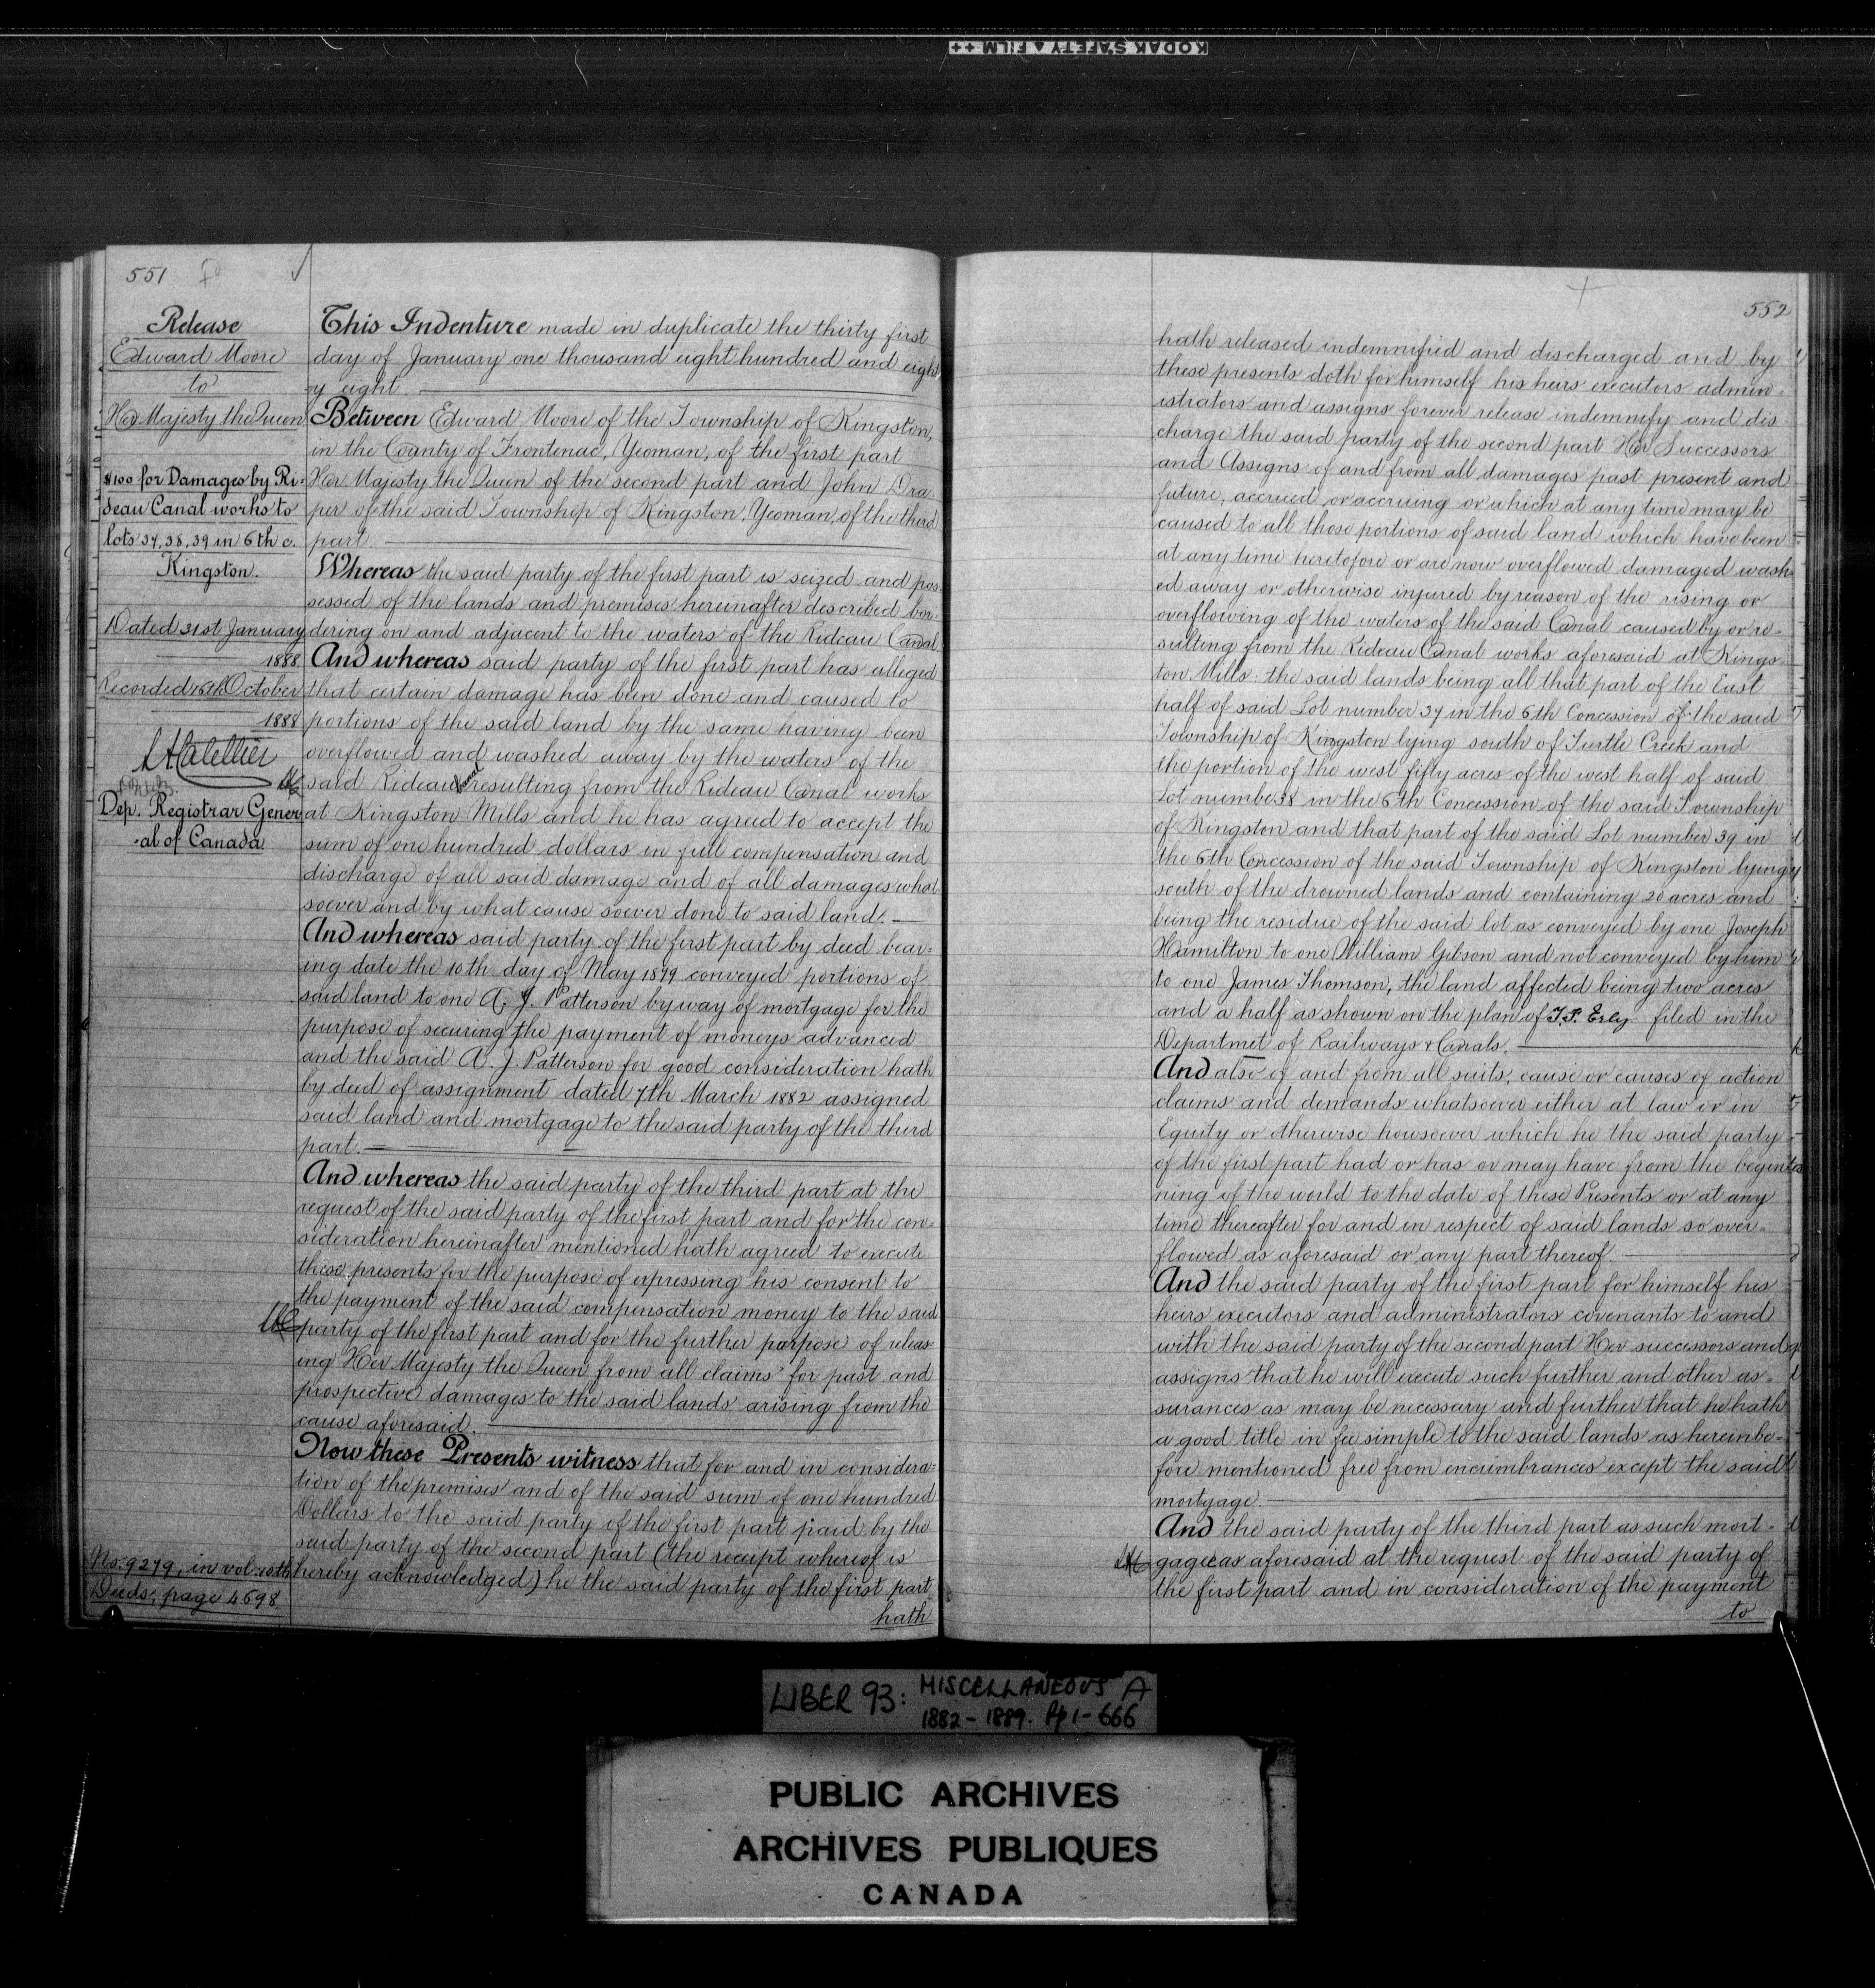 KODAK SAFETY ▲ FILM ++
551
Release
Edward Moore
to
Her Majesty the Queen
$100 for Damages by Ri-
deau Canal works to
lots 37, 38, 39 in 6th c.
Kingston.
Dated 31st January
1888
Recorded 16th October
1888
Dep. Registrar Gener
-al of Canada
No. 9279, in vol.
Deeds, page 4698.
This Indenture made in duplicate the thirty first
day of January one thousand eight hundred and eight
-y eight
Between Edward Moore of the Township of Kingston,
in the County of Frontenac, Yeoman, of the first part
Her Majesty the Queen of the second part and John Dra
per of the said Township of Kingston, Yeoman, of the third
part.
Whereas the said party of the first part is seized and pos
sessed of the lands and premises hereinafter described bor-
dering on and adjacent to the waters of the Rideau Canal
And whereas said party of the first part has alleged
that certain damage has been done and caused to
portions of the said land by the same having been
overflowed and washed away by the waters of the
said Rideau Canal resulting from the Rideau Canal works
at Kingston Mills and he has agreed to accept the
sum of one hundred dollars in full compensation and
discharge of all said damage and of all damages what
soever and by what cause soever done to said land.
And whereas said party of the first part by deed bear-
ing date the 10th day of May 1879 conveyed portions of
said land to one A. J. Patterson by way of mortgage for the
purpose of securing the payment of moneys advanced
and the said A. J. Patterson for good consideration hath
by deed of assignment dated 7th March 1882 assigned
said land and mortgage to the said party of the third
part.
And whereas the said party of the third part at the
request of the said party of the first part and for the con-
sideration hereinafter mentioned hath agreed to execute
these presents for the purpose of expressing his consent to
the payment of the said compensation money to the said
party of the first part and for the further purpose of releas
ing Her Majesty the Queen from all claims for past and
prospective damages to the said lands arising from the
cause aforesaid.
Now these Presents witness that for and in considera-
tion of the premises and of the said sum of one hundred
Dollars to the said party of the first part paid by the
said party of the second part (the receipt whereof is
hereby acknowledged) he the said party of the first part
hath
552
hath released indemnified and discharged and by
these presents doth for himself his heirs executors admin-
istrators and assigns forever release indemnify and dis-
charge the said party of the second part Her Successors
and Assigns of and from all damages past present and
future, accrued or accruing or which at any time may be
caused to all those portions of said land which have been
at any time heretofore or are now overflowed damaged wash
ed away or otherwise injured by reason of the rising or
overflowing of the waters of the said Canal caused by or re-
sulting from the Rideau Canal works aforesaid at Kings-
ton Mills: the said lands being all that part of the East
half of said Lot number 37 in the 6th Concession of the said
Township of Kingston lying south of Turtle Creek and
the portion of the west fifty acres of the west half of said
Lot number 38 in the 6th Concession of the said Township
of Kingston and that part of the said Lot number 39 in
the 6th Concession of the said Township of Kingston lying
south of the drowned lands and containing 20 acres and
being the residue of the said lot as conveyed by one Joseph
Hamilton to one William Gibson and not conveyed by him
to one James Thomson, the land affected being two acres
and a half as shown on the plan of filed in the
Departmet of Railways & Canals.
And also of and from all suits, cause or causes of action
claims and demands whatsoever either at law or in
Equity or otherwise howsoever which he the said party
of the first part had or has or may have from the begin
ning of the world to the date of these Presents or at any
time thereafter for and in respect of said lands so over-
flowed as aforesaid or any part thereof.
And the said party of the first part for himself his
heirs executors and administrators covenants to and
with the said party of the second part Her successors and
assigns that he will execute such further and other as-
surances as may be necessary and further that he hath
a good title in fee simple to the said lands as hereinbe-
fore mentioned free from encumbrances except the said
mortgage.
And the said party of the third part as such mort-
gagee as aforesaid at the request of the said party of
the first part and in consideration of the payment
to
LIBER 93: MISCELLANEOUS A
1882-1889. Pp 1-666
PUBLIC ARCHIVES
ARCHIVES PUBLIQUES
CANADA